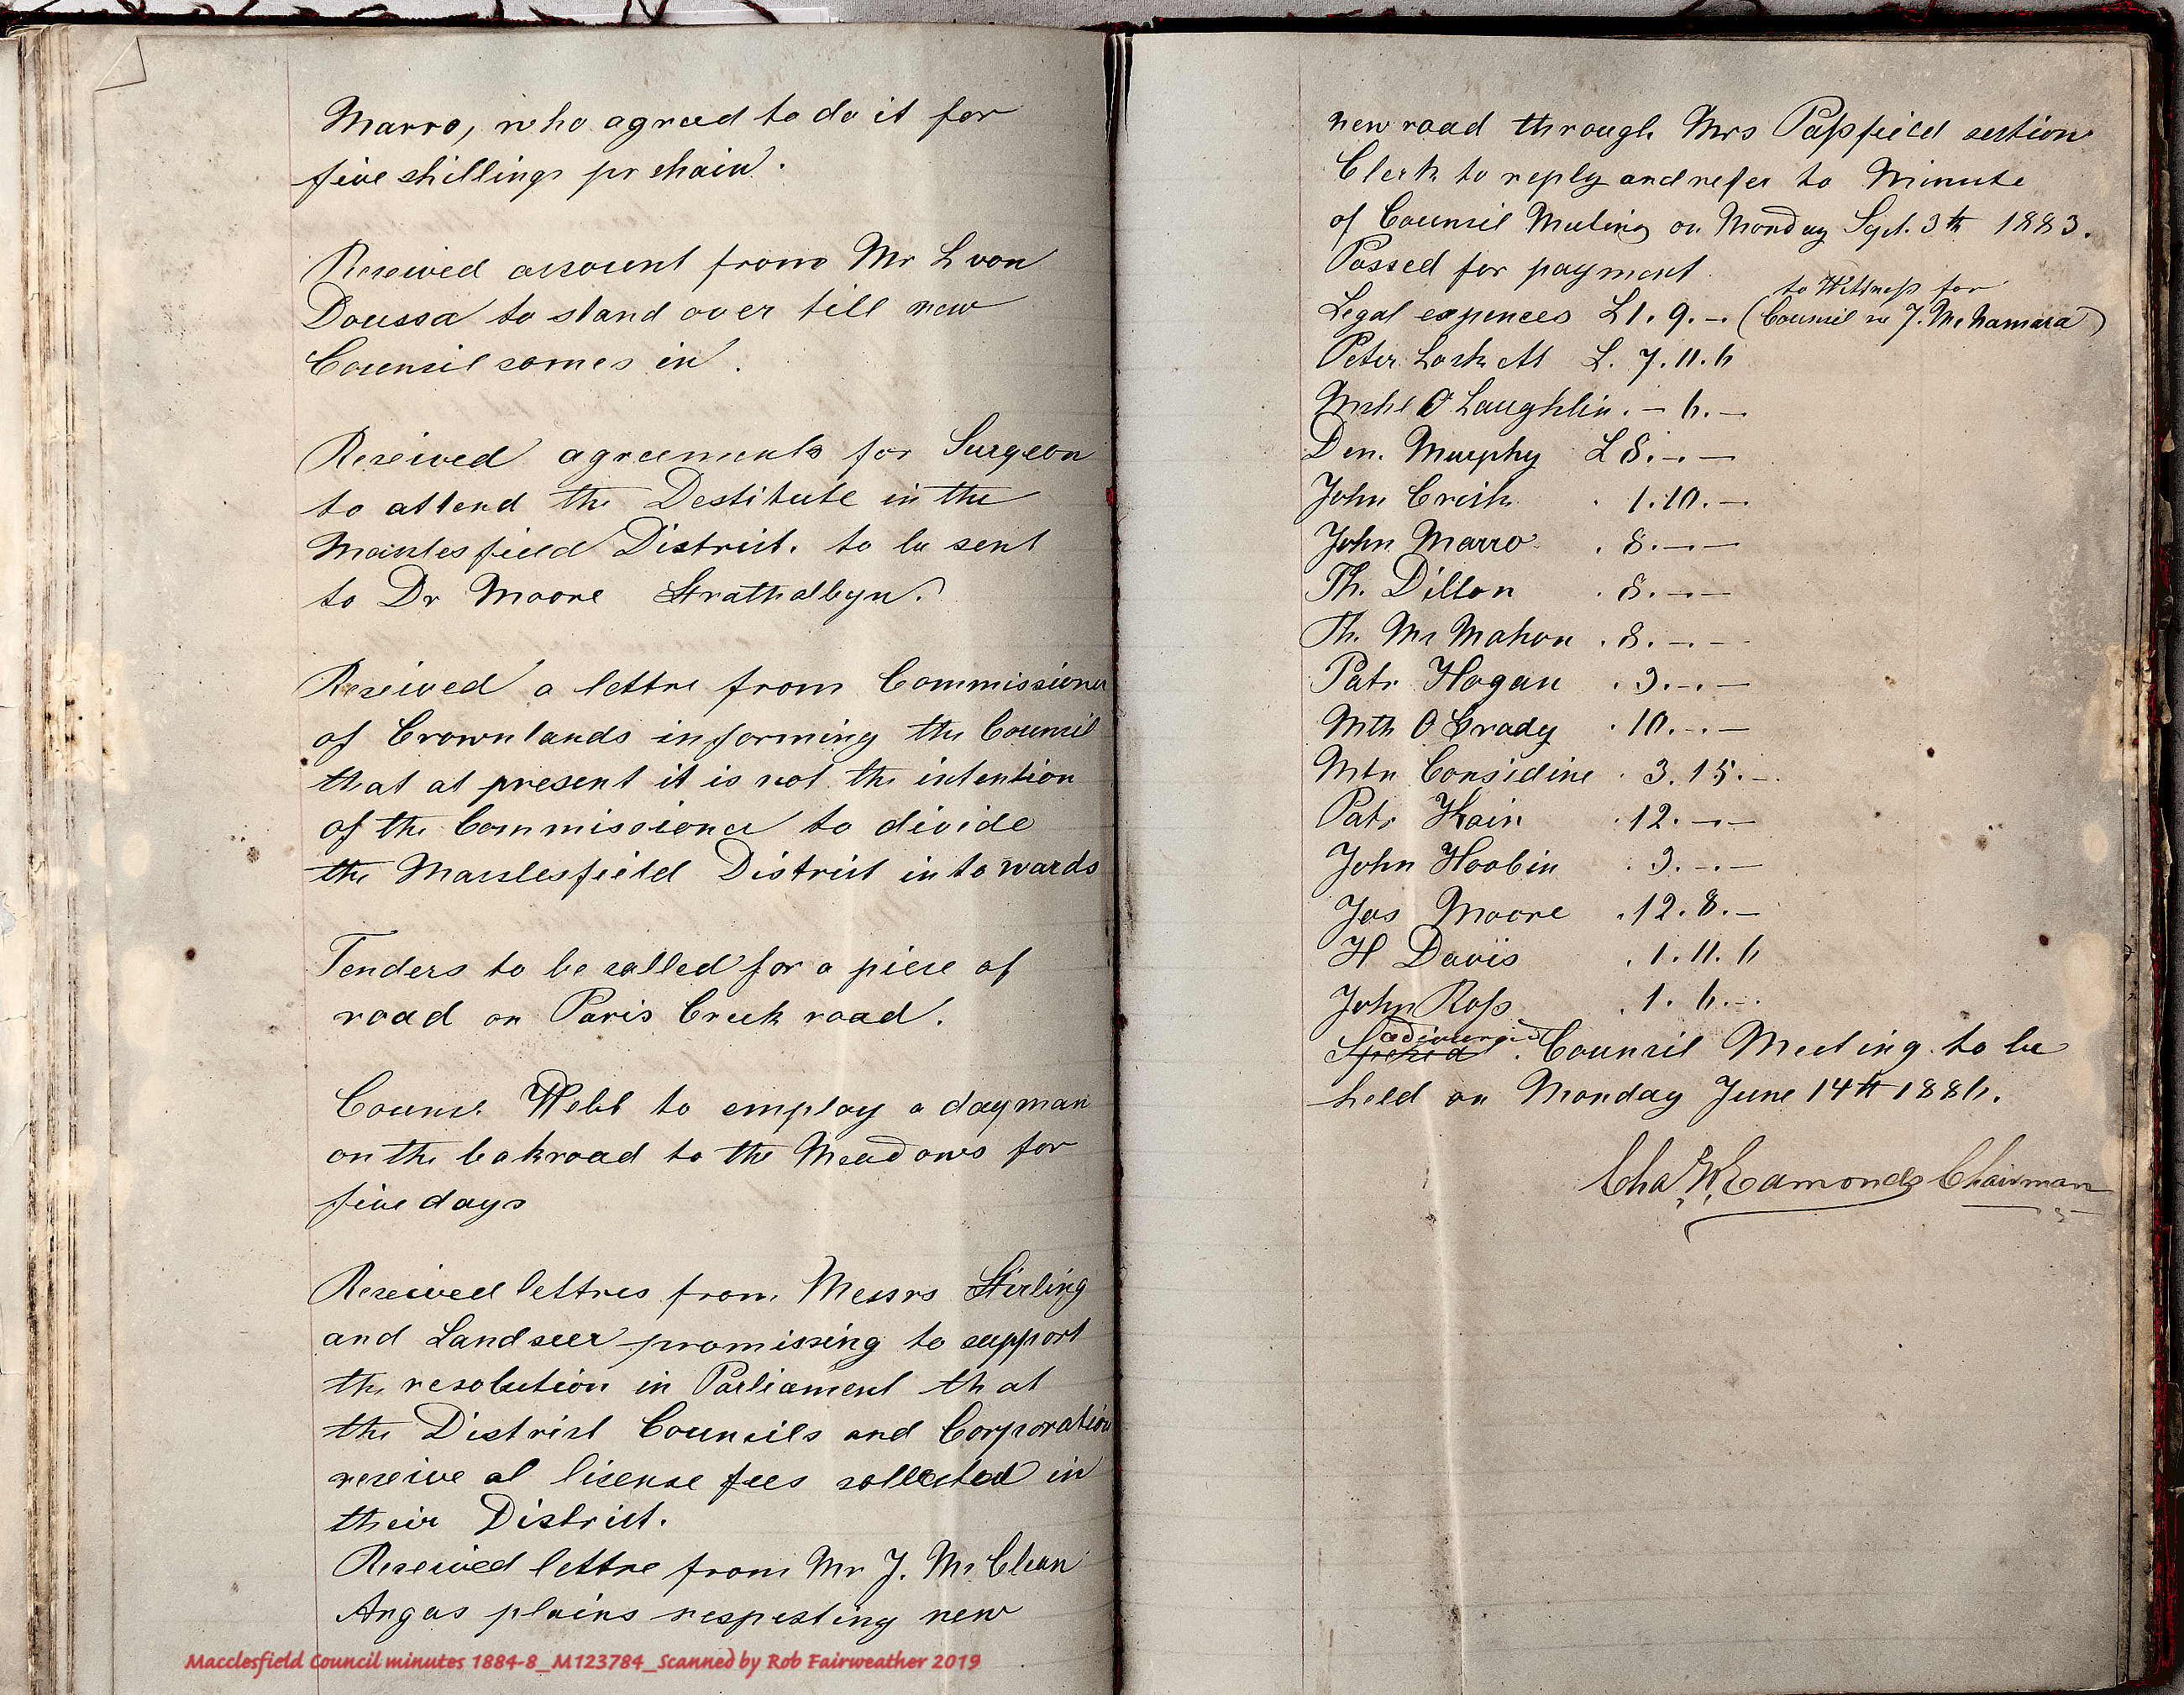 Marro, who agreed to do it for
five shillings pr chain.
Received account from Mr L von
Doussa to stand over till new
Council comes in.
Received agreements for Surgeon
to attend the Destitute in the
Macclesfield District. to be sent
to Dr Moore Strathalbyn.
Received a lettre from Commissioner
of Crownlands informing the Council
that at present it is not the intention
of the Commissioner to divide
the Macclesfield District into wards
Tenders to be called for a piece of
road on Paris Creek road.
Counc. Webb to employ a dayman
on the bakroad to the Meadows for
five days
Received lettres from Messrs Stirling
and Landseer promissing to support
the resolution in Parliament that
the District Councils and Corporation
receive al license fees collected in
their District.
Received lettre from Mr J. McClean
Angas plains respecting new
new road through Mrs Passfield section
Clerk to reply and refer to Minute
of Council Meeting on Monday Sept. 3th 1883.
Passed for payment
to Wittness for
Legal expences £1.9.- (Council re J. McNamara)
Peter Lork £. 7.11.6
Mchl O Laughlin. - 6.-
Den. Murphy £8.-.-
John Creik . 1.10.-
John Marro . 8.-.-
Th. Dillon . 8.-.-
Th. McMahon . 8.-.-
Patr Hogan . 9.-.-
Mth O Grady . 10.-.-
Mtn Considine . 3.15.-
Patr Kain . 12.-.-
John Hoobin . 9.-.-
Jas Moore . 12.8.-
H Davis . 1.11.6
John Ross . 1.6.-
adjourned
Special Council Meeting to be
held on Monday June 14th 1886.
Chas W Edmonds Chairman
Macclesfield Council minutes 1884-8_M123784_Scanned by Rob Fairweather 2019